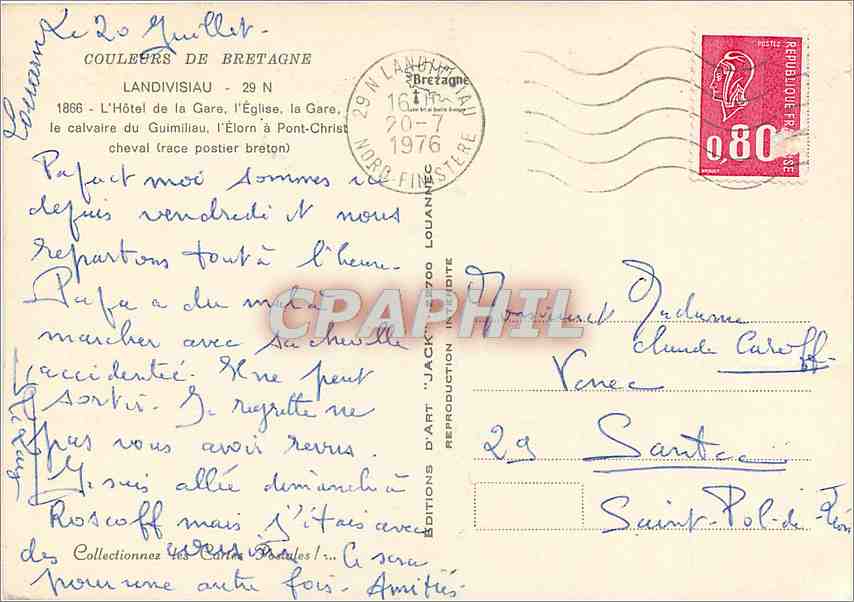 Le 20 Juillet.
COULEURS DE BRETAGNE
LANDIVISIAU - 29 N
1866 - L'Hôtel de la Gare, l'Église, la Gare,
le calvaire du Guimiliau, l'Élorn à Pont-Christ
cheval (race postier breton)
Papa et moi sommes ici
depuis vendredi et nous
repartons tout à l'heure.
Papa a du mal à
marcher avec sa cheville
accidentée. Il ne peut
sortir. Je regrette ne
pas vous avoir revus.
Je suis allée dimanche à
Roscoff mais j'étais avec
des cousins. Ce sera
Collectionnez les Cartes Postales !...
pour une autre fois. Amitiés.
EDITIONS D'ART "JACK" 22700 LOUANNEC
REPRODUCTION INTERDITE
29 N LANDIVISIAU
16H
20-7
1976
NORD-FINISTERE
Bretagne
POSTES
REPUBLIQUE FRANCAISE
0,80
CPAPHIL
Monsieur et Madame
Claude Caroff
29 Santec
Saint-Pol-de-Léon